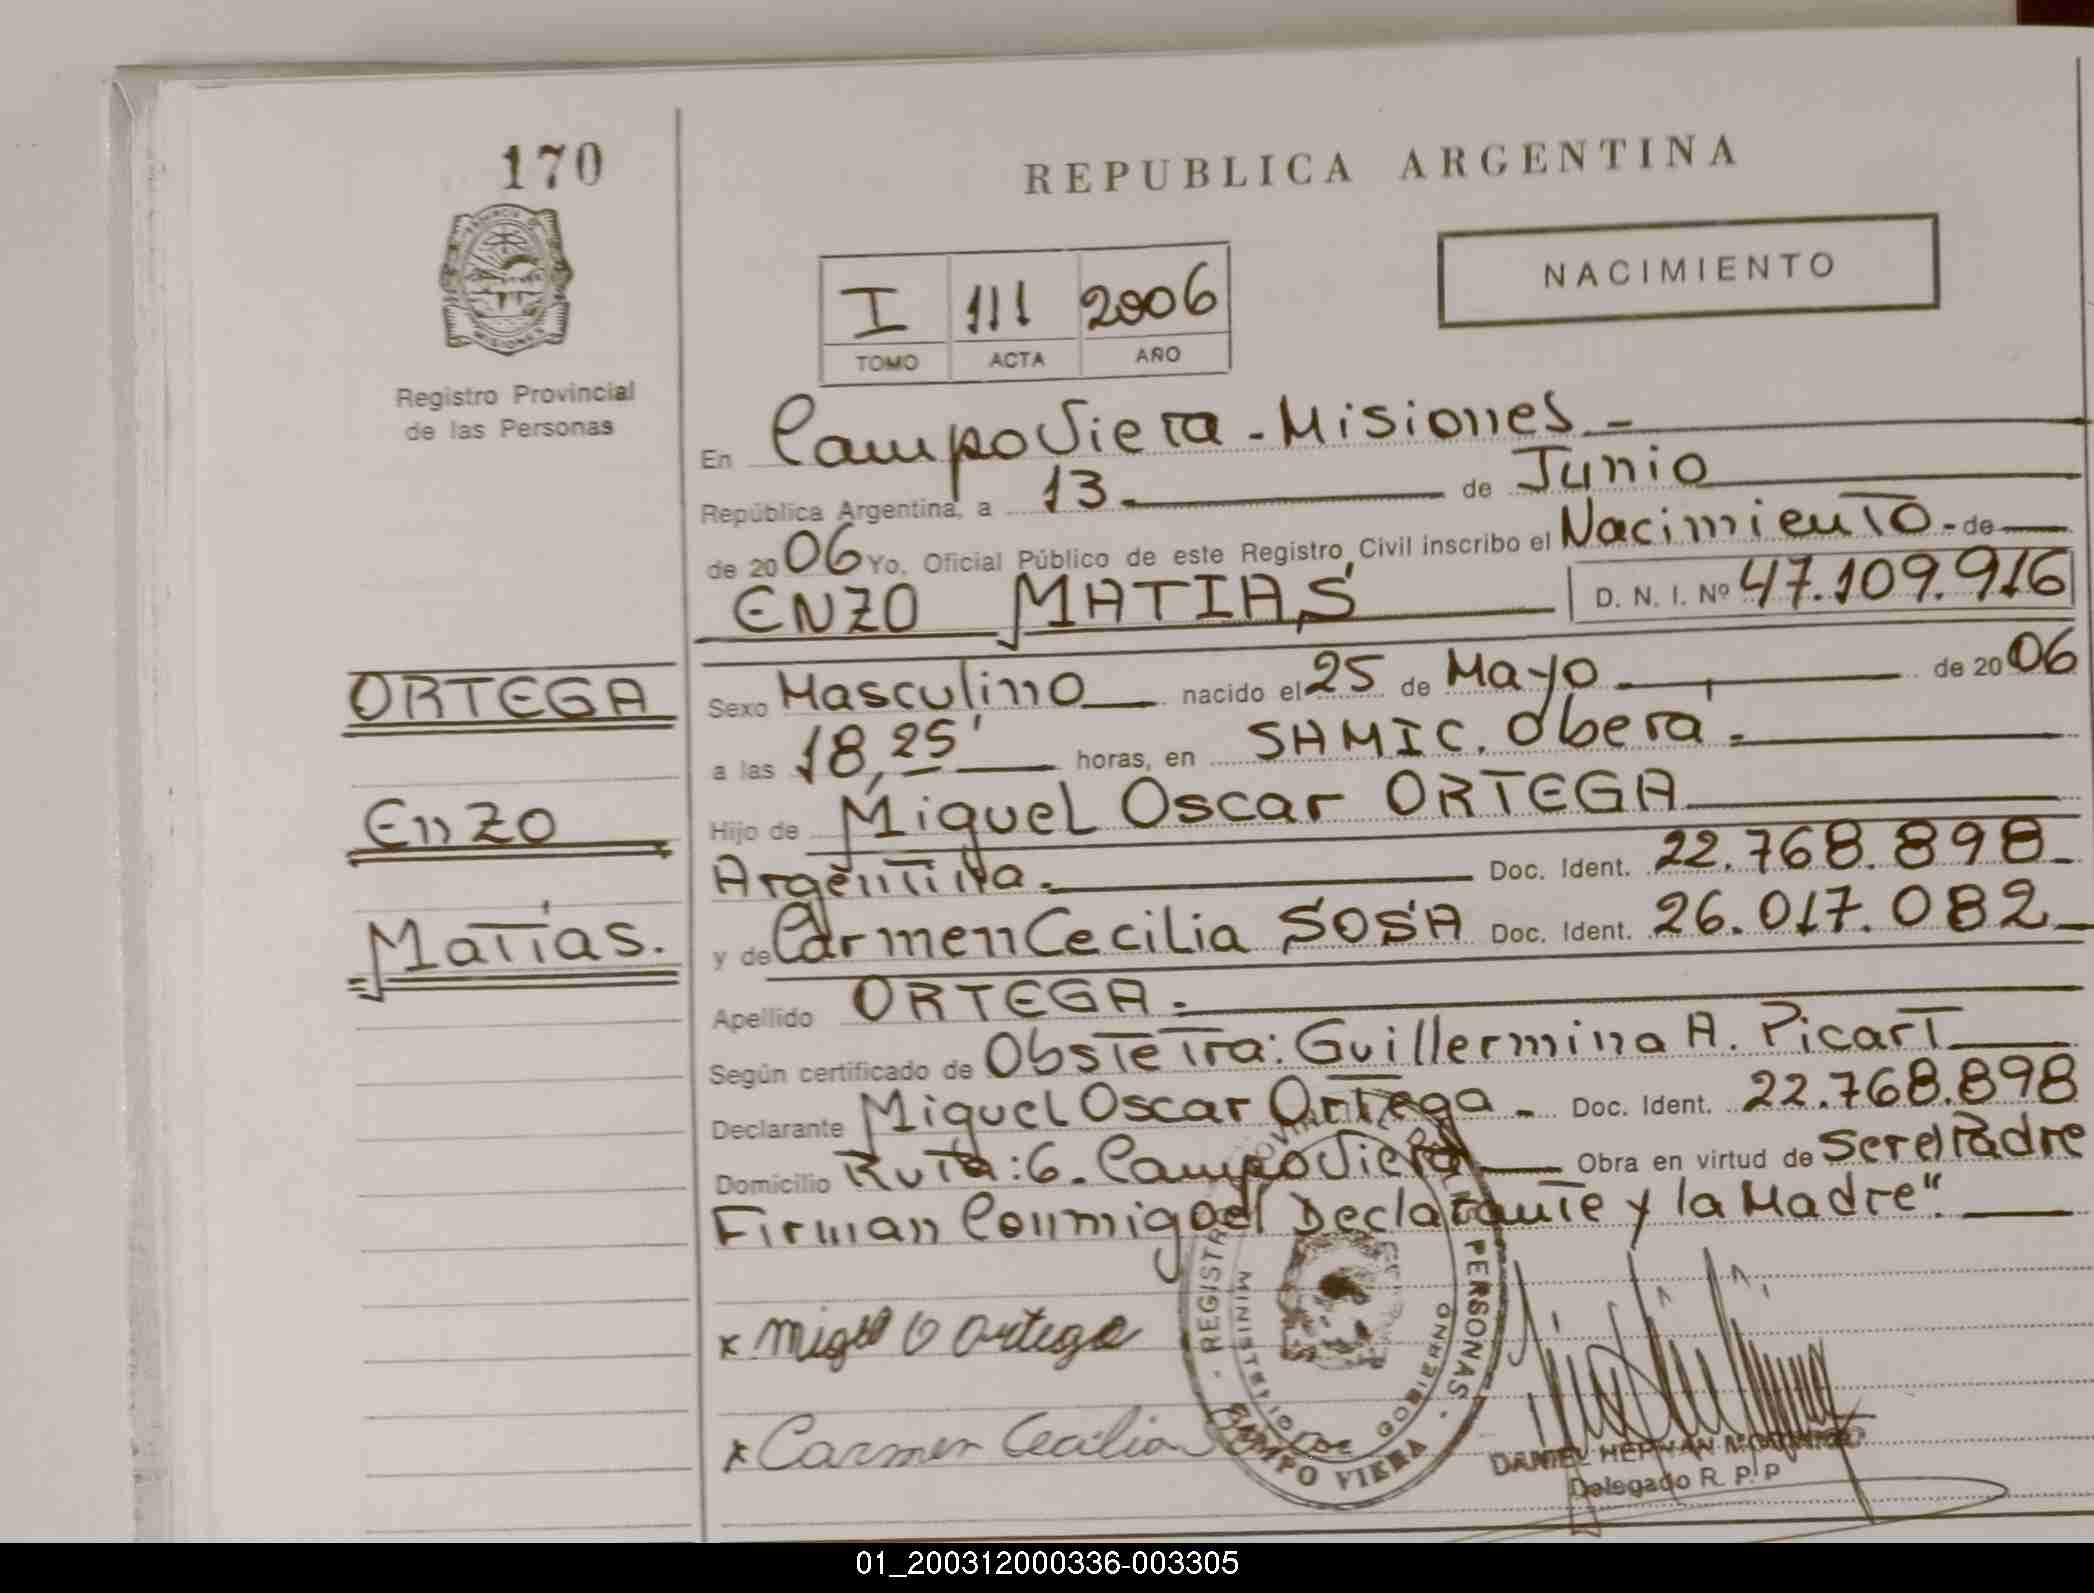 170
REPUBLICA ARGENTINA
NACIMIENTO
I 111 2006
TOMO ACTA AÑO
PROVINCIA DE MISIONES
Registro Provincial
de las Personas
En Campo Viera - Misiones -
República Argentina, a 13 de Junio
de 2006 Yo, Oficial Público de este Registro Civil inscribo el Nacimiento - de
ENZO MATIAS D. N. I. Nº 47.109.916
ORTEGA
Enzo
Matías.
Sexo Masculino nacido el 25 de Mayo de 2006
a las 18,25' horas, en SAMIC. Oberá -
Hijo de Miguel Oscar ORTEGA
Argentina - Doc. Ident. 22.768.898
y de Carmen Cecilia SOSA Doc. Ident. 26.017.082
Apellido ORTEGA -
Según certificado de Obstetra: Guillermina A. Picart
Declarante Miguel Oscar Ortega - Doc. Ident. 22.768.898
Domicilio Ruta: 6. Campo Viera Obra en virtud de Ser el Padre
Firman Conmigo el Declarante y la Madre".
x Miguel O Ortega
x Carmen Cecilia
REGISTRO PROVINCIAL DE LAS PERSONAS
MINISTERIO DE GOBIERNO
CAMPO VIERA
DANIEL HERNAN
Delegado R. P. P
01_200312000336-003305